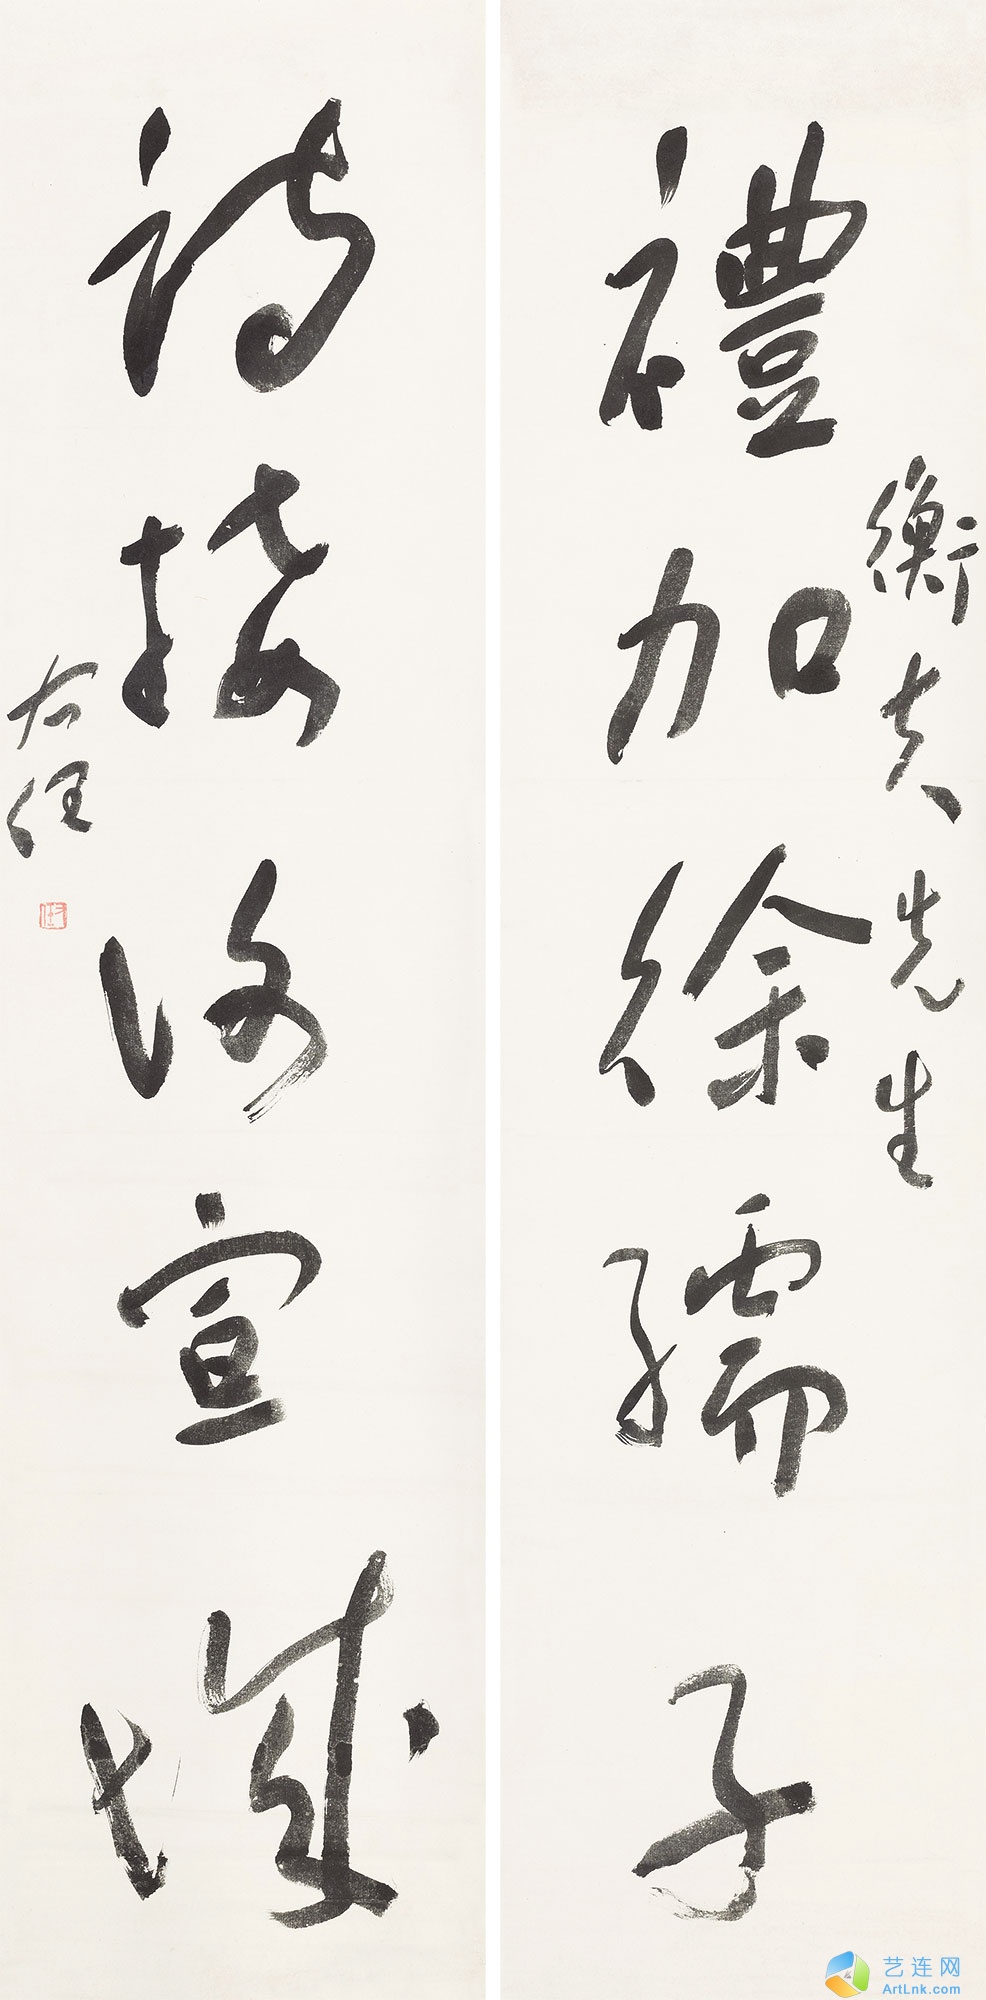 禮加徐孺子
衡夫先生
詩接謝宣城
右任
艺连网
ArtLnk.com